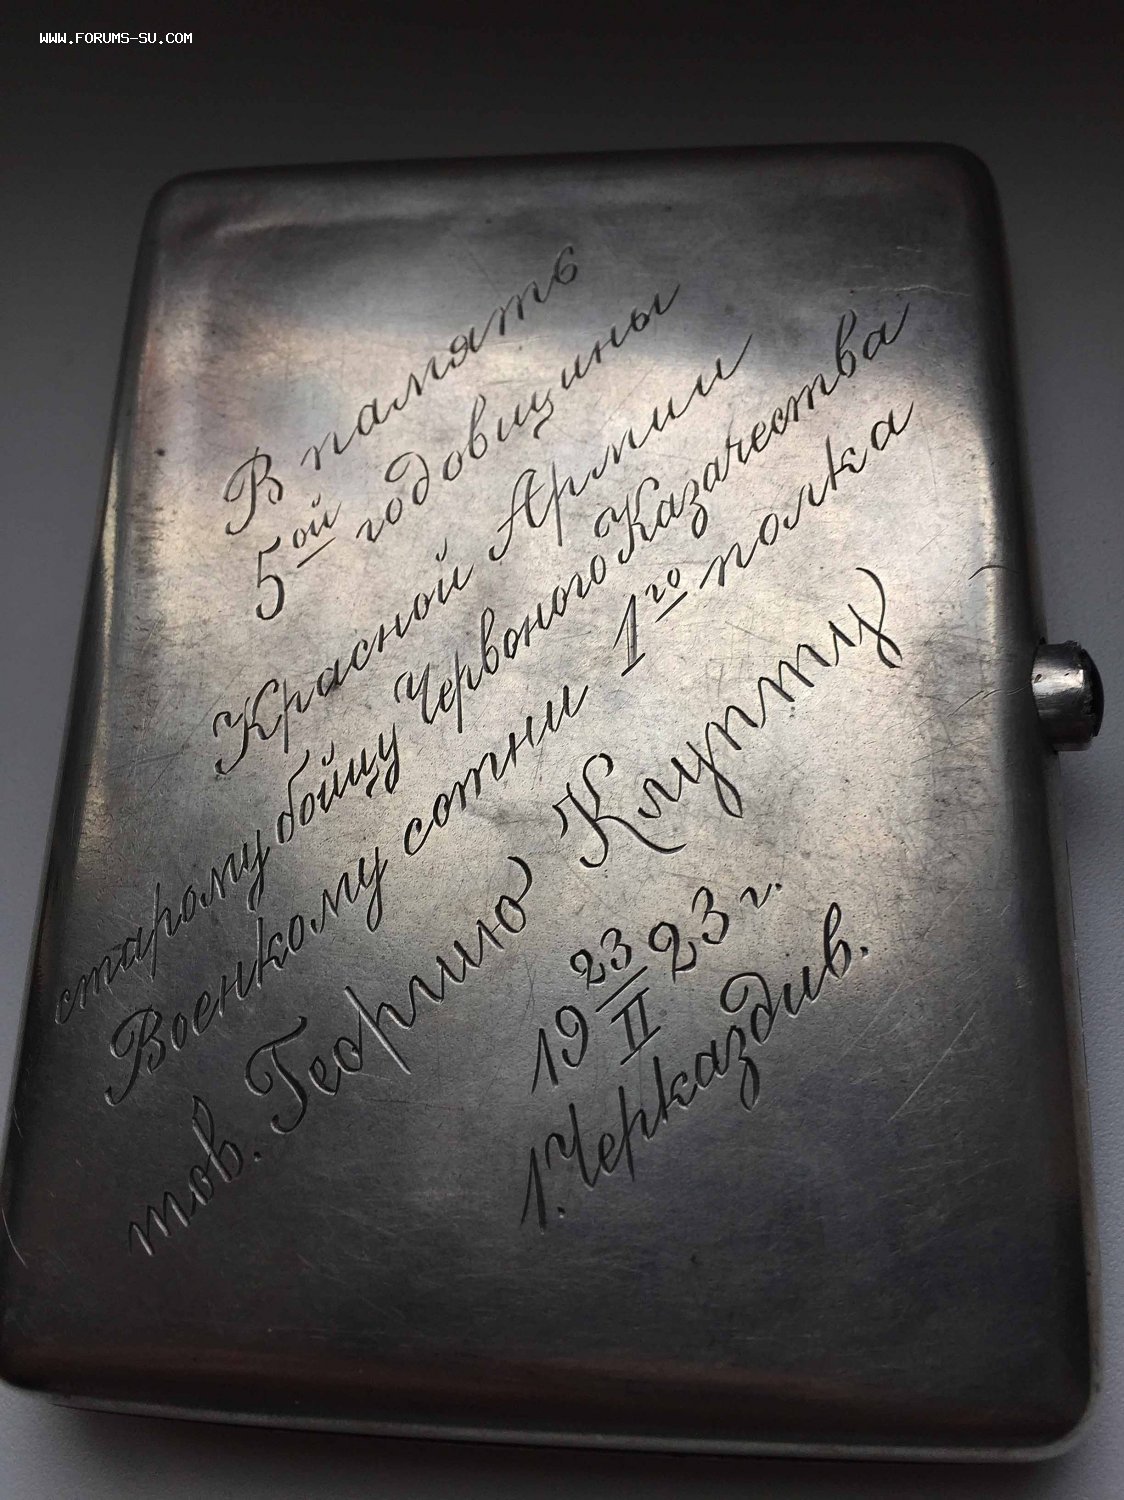 WWW.FORUMS-SU.COM
В память
5ой годовщины
Красной Армии
старому бойцу Червоного Казачества
Военкому сотни 1го полка
тов. Георгию Клуппту
19 23/II 23 г.
1. Черказдив.